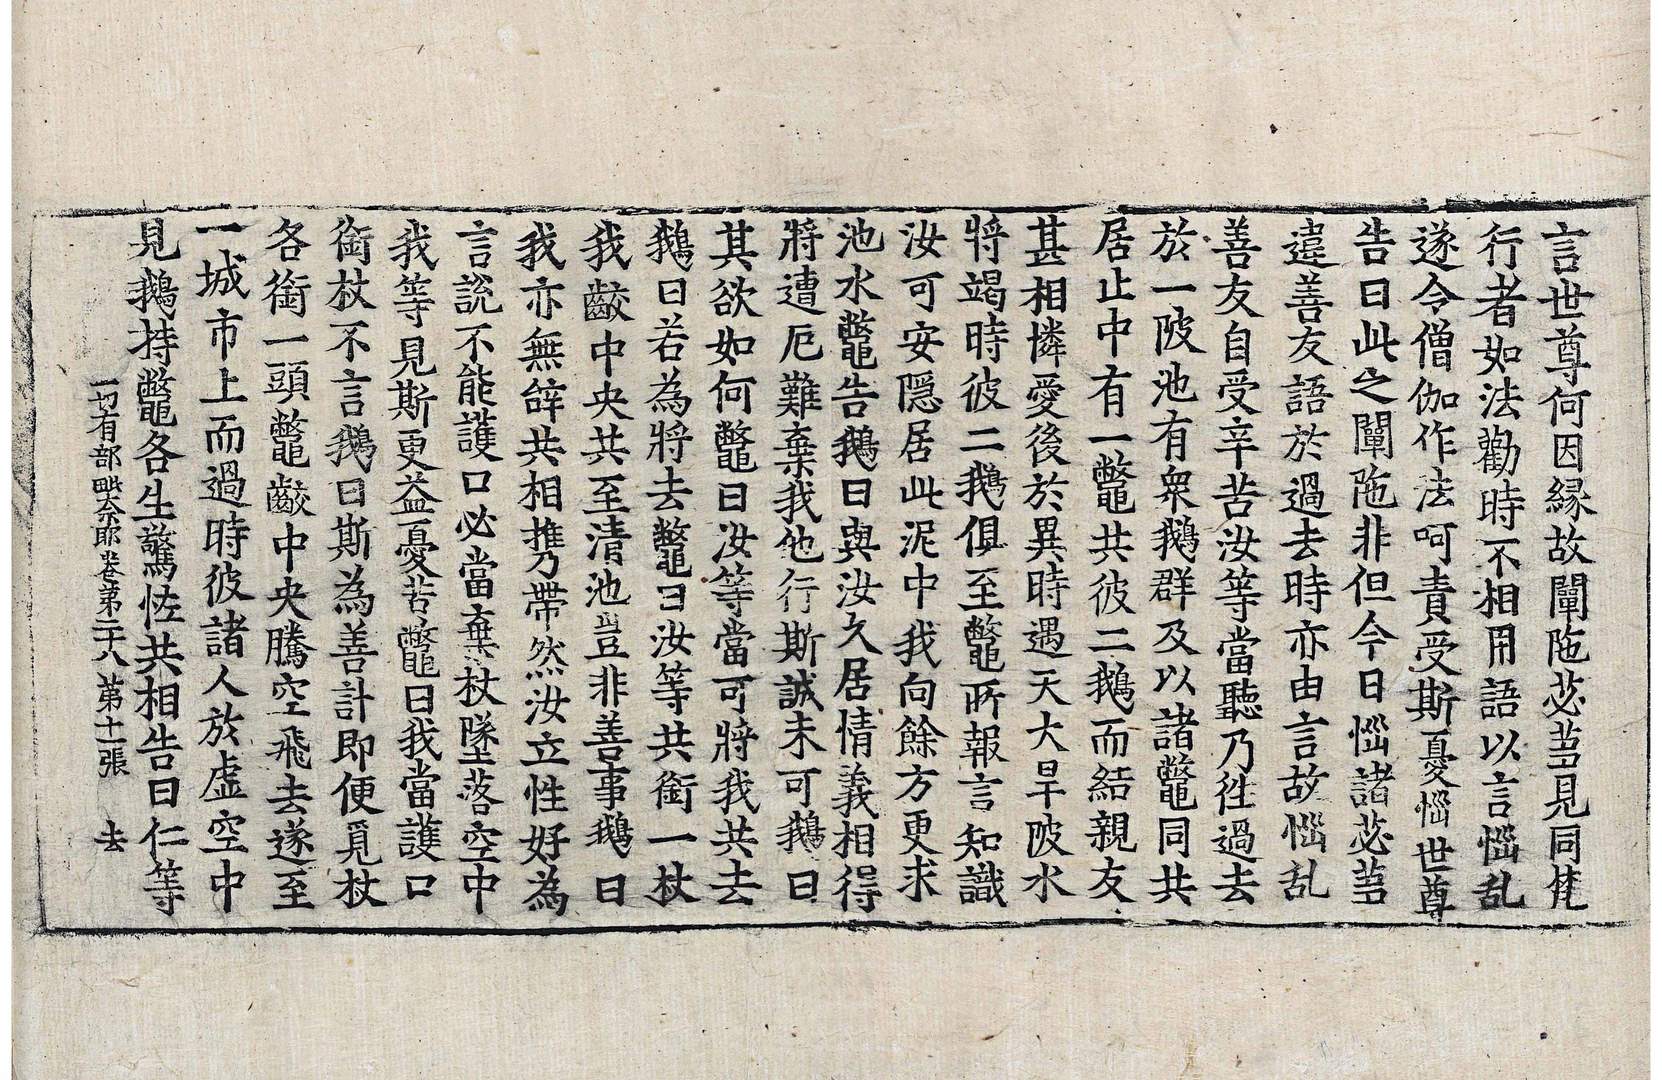 言世尊何因緣故闡陁苾芻見同梵
行者如法勸時不相用語以言惱乱
遂令僧伽作法呵責受斯憂惱世尊
告曰此之闡陁非但今日惱諸苾芻
違善友語於過去時亦由言故惱乱
善友自受辛苦汝等當聽乃往過去
於一陂池有衆鵝群及以諸鼈同共
居止中有一鼈共彼二鵝而結親友
甚相憐愛後於異時遇天大旱陂水
將竭時彼二鵝俱至鼈所報言知識
汝可安隱居此泥中我向餘方更求
池水鼈告鵝曰與汝久居情義相得
將遭厄難棄我他行斯誠未可鵝曰
其欲如何鼈曰汝等當可將我共去
鵝曰若為將去鼈曰汝等共銜一杖
我齩中央共至清池豈非善事鵝曰
我亦無辞共相攜乃帶然汝立性好為
言說不能護口必當棄杖墜落空中
我等見斯更益憂苦鼈曰我當護口
銜杖不言鵝曰斯為善計即便覓杖
各銜一頭鼈齩中央騰空飛去遂至
一城市上而過時彼諸人於虛空中
見鵝持鼈各生驚恠共相告曰仁等
一切有部毗奈耶卷第二十八 第十一張 去